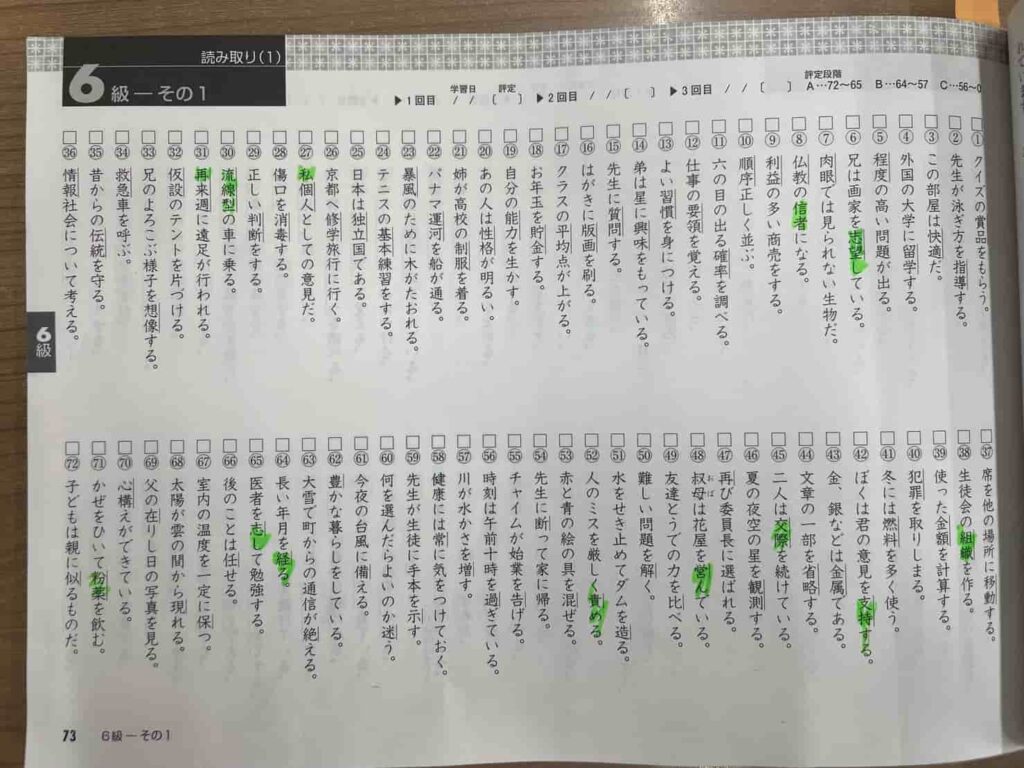 読み取り(1)
6級—その1
▶1回目
学習日 / /
評定 〔 〕
▶2回目 / / 〔 〕
▶3回目 / / 〔 〕
評定段階
A…72〜65 B…64〜57 C…56〜0
① クイズの賞品をもらう。
② 先生が泳ぎ方を指導する。
③ この部屋は快適だ。
④ 外国の大学に留学する。
⑤ 程度の高い問題が出る。
⑥ 兄は画家を志望している。
⑦ 肉眼では見られない生物だ。
⑧ 仏教の信者になる。
⑨ 利益の多い商売をする。
⑩ 順序正しく並ぶ。
⑪ 六の目の出る確率を調べる。
⑫ 仕事の要領を覚える。
⑬ よい習慣を身につける。
⑭ 弟は星に興味をもっている。
⑮ 先生に質問する。
⑯ はがきに版画を刷る。
⑰ クラスの平均点が上がる。
⑱ お年玉を貯金する。
⑲ 自分の能力を生かす。
⑳ あの人は性格が明るい。
㉑ 姉が高校の制服を着る。
㉒ パナマ運河を船が通る。
㉓ 暴風のために木がたおれる。
㉔ テニスの基本練習をする。
㉕ 日本は独立国である。
㉖ 京都へ修学旅行に行く。
㉗ 私個人としての意見だ。
㉘ 傷口を消毒する。
㉙ 正しい判断をする。
㉚ 流線型の車に乗る。
㉛ 再来週に遠足が行われる。
㉜ 仮設のテントを片づける。
㉝ 兄のよろこぶ様子を想像する。
㉞ 救急車を呼ぶ。
㉟ 昔からの伝統を守る。
㊱ 情報社会について考える。
㊲ 席を他の場所に移動する。
㊳ 生徒会の組織を作る。
㊴ 使った金額を計算する。
㊵ 犯罪を取りしまる。
㊶ 冬には燃料を多く使う。
㊷ ぼくは君の意見を支持する。
㊸ 金、銀などは金属である。
㊹ 文章の一部を省略する。
㊺ 二人は交際を続けている。
㊻ 夏の夜空の星を観測する。
㊼ 再び委員長に選ばれる。
㊽ 叔母は花屋を営んでいる。
おば
㊾ 友達とうでの力を比べる。
㊿ 難しい問題を解く。
51 水をせき止めてダムを造る。
52 人のミスを厳しく責める。
53 赤と青の絵の具を混ぜる。
54 先生に断って家に帰る。
55 チャイムが始業を告げる。
56 時刻は午前十時を過ぎている。
57 川が水かさを増す。
58 健康には常に気をつけておく。
59 先生が生徒に手本を示す。
60 何を選んだらよいのか迷う。
61 今夜の台風に備える。
62 豊かな暮らしをしている。
63 大雪で町からの通信が絶える。
64 長い年月を経る。
65 医者を志して勉強する。
66 後のことは任せる。
67 室内の温度を一定に保つ。
68 太陽が雲の間から現れる。
69 父の在りし日の写真を見る。
70 心構えができている。
71 かぜをひいて粉薬を飲む。
72 子どもは親に似るものだ。
6級
73 6級—その1